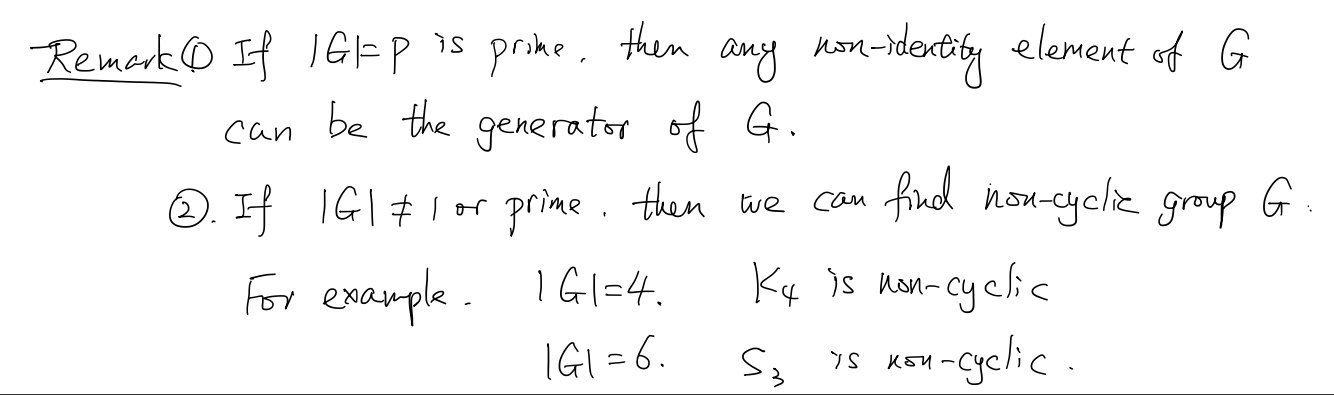 Remark ① If |G|=p is prime, then any non-identity element of G
can be the generator of G.
②. If |G| ≠ 1 or prime, then we can find non-cyclic group G.
For example. |G|=4. K₄ is non-cyclic
|G|=6. S₃ is non-cyclic.